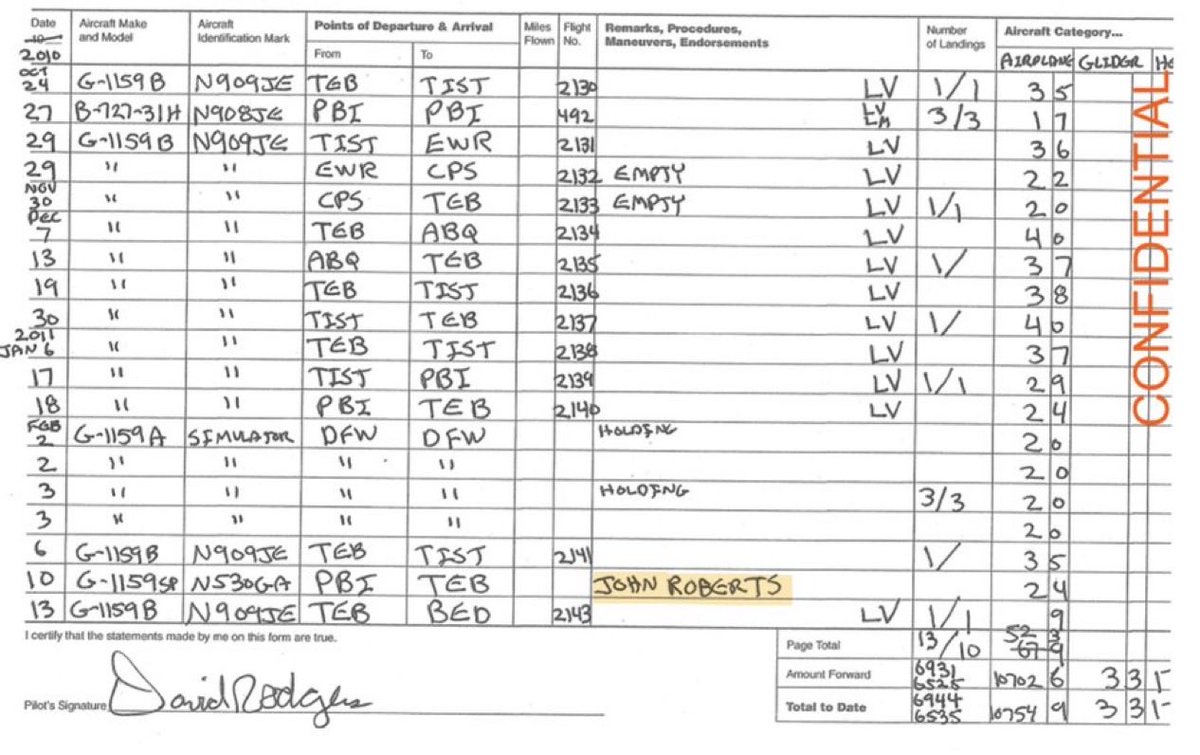 Date Aircraft Make and Model Aircraft Identification Mark Points of Departure & Arrival Miles Flown Flight No. Remarks, Procedures, Maneuvers, Endorsements Number of Landings Aircraft Category...
2010 From To AIRPLANE GLIDER
OCT 24 G-1159B N909JE TEB TIST 2130 LV 1/1 3 5
27 B-727-31H N908JE PBI PBI 492 LV LM 3/3 1 7
29 G-1159B N909JE TIST EWR 2131 LV 3 6
29 " " EWR CPS 2132 EMPTY LV 2 2
NOV 30 " " CPS TEB 2133 EMPTY LV 1/1 2 0
DEC 7 " " TEB ABQ 2134 LV 4 0
13 " " ABQ TEB 2135 LV 1/ 3 7
19 " " TEB TIST 2136 LV 3 8
30 " " TIST TEB 2137 LV 1/ 4 0
2011 JAN 6 " " TEB TIST 2138 LV 3 7
17 " " TIST PBI 2139 LV 1/1 2 9
18 " " PBI TEB 2140 LV 2 4
FEB 2 G-1159A SIMULATOR DFW DFW HOLDING 2 0
2 " " " " 2 0
3 " " " " HOLDING 3/3 2 0
3 " " " " 2 0
6 G-1159B N909JE TEB TIST 2141 1/ 3 5
10 G-1159SP N530GA PBI TEB JOHN ROBERTS 2 4
13 G-1159B N909JE TEB BED 2143 LV 1/1 9
I certify that the statements made by me on this form are true.
Page Total 13/10 52 3
67 9
Amount Forward 6931 6525 10702 6 33 1
Total to Date 6944 6535 10754 9 33 1
Pilot's Signature David Rodgers
CONFIDENTIAL